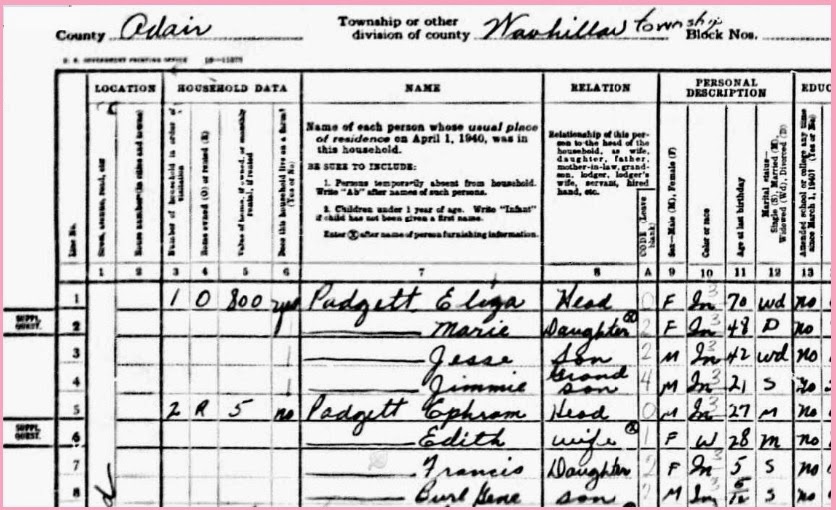 County Adair Township or other division of county Wauhillau township Block Nos.
U. S. GOVERNMENT PRINTING OFFICE
LOCATION HOUSEHOLD DATA NAME RELATION PERSONAL DESCRIPTION EDUC
Line No.
Street, avenue, road, etc.
House number (in cities and towns)
Number of household in order of visitation
Home owned (O) or rented (R)
Value of home, if owned, or monthly rental, if rented
Does this household live on a farm? (Yes or No)
Name of each person whose usual place
of residence on April 1, 1940, was in
this household.
BE SURE TO INCLUDE:
1. Persons temporarily absent from household.
Write "Ab" after names of such persons.
2. Children under 1 year of age. Write "Infant"
if child has not been given a first name.
Enter ⓧ after name of person furnishing information.
Relationship of this per-
son to the head of the
household, as wife,
daughter, father,
mother-in-law, grand-
son, lodger, lodger's
wife, servant, hired
hand, etc.
CODE (Leave blank)
Sex—Male (M), Female (F)
Color or race
Age at last birthday
Marital status—Single (S), Married (M), Widowed (Wd), Divorced (D)
Attended school or college any time since March 1, 1940? (Yes or No)
1 2 3 4 5 6 7 8 A 9 10 11 12 13
1 1 O 800 yes Padgett Eliza Head 0 F In 3 70 wd no
SUPPL. QUEST. 2 Marie Daughter ⓧ 2 F In 3 48 D no
3 Jesse Son 2 M In 3 42 wd no
4 Jimmie Grand son 4 M In 3 21 S no
5 2 R 5 no Padgett Ephram Head 0 M In 3 27 M no
SUPPL. QUEST. 6 Edith wife ⓧ 1 F W 28 m no
7 Francis Daughter 2 F In 3 5 S no
8 Burl Gene son 2 M In 3 S no